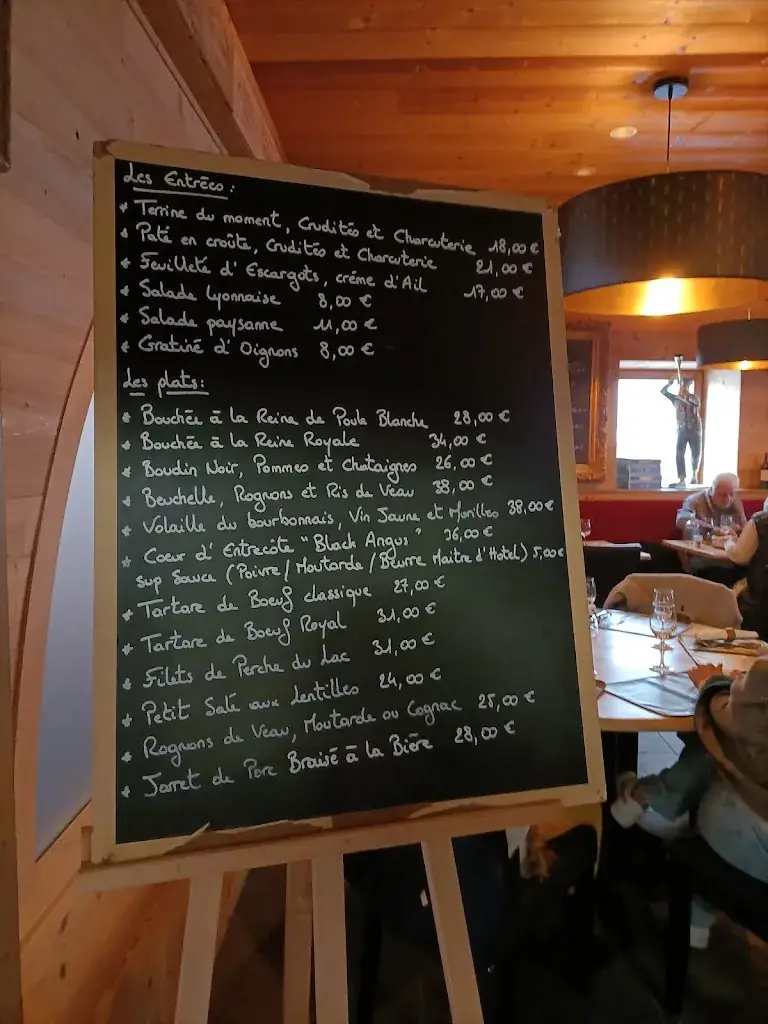 Les Entrées :
* Terrine du moment, Crudités et Charcuterie 18,00 €
* Paté en croûte, Crudités et Charcuterie 21,00 €
* Feuilleté d'Escargots, crème d'Ail 17,00 €
* Salade Lyonnaise 8,00 €
* Salade paysanne 11,00 €
* Gratiné d'Oignons 8,00 €
Les plats :
* Bouchée à la Reine de Poule Blanche 28,00 €
* Bouchée à la Reine Royale 34,00 €
* Boudin Noir, Pommes et Chataignes 26,00 €
* Beuchelle, Rognons et Ris de Veau 38,00 €
* Volaille du bourbonnais, Vin Jaune et Morilles 38,00 €
* Coeur d'Entrecôte "Black Angus" 36,00 €
Sup Sauce (Poivre/Moutarde/Beurre Maitre d'Hotel) 5,00 €
* Tartare de Boeuf classique 27,00 €
* Tartare de Boeuf Royal 31,00 €
* Filets de Perche du Lac 31,00 €
* Petit Salé aux Lentilles 24,00 €
* Rognons de Veau, Moutarde ou Cognac 25,00 €
* Jarret de Porc Braisé à la Bière 28,00 €